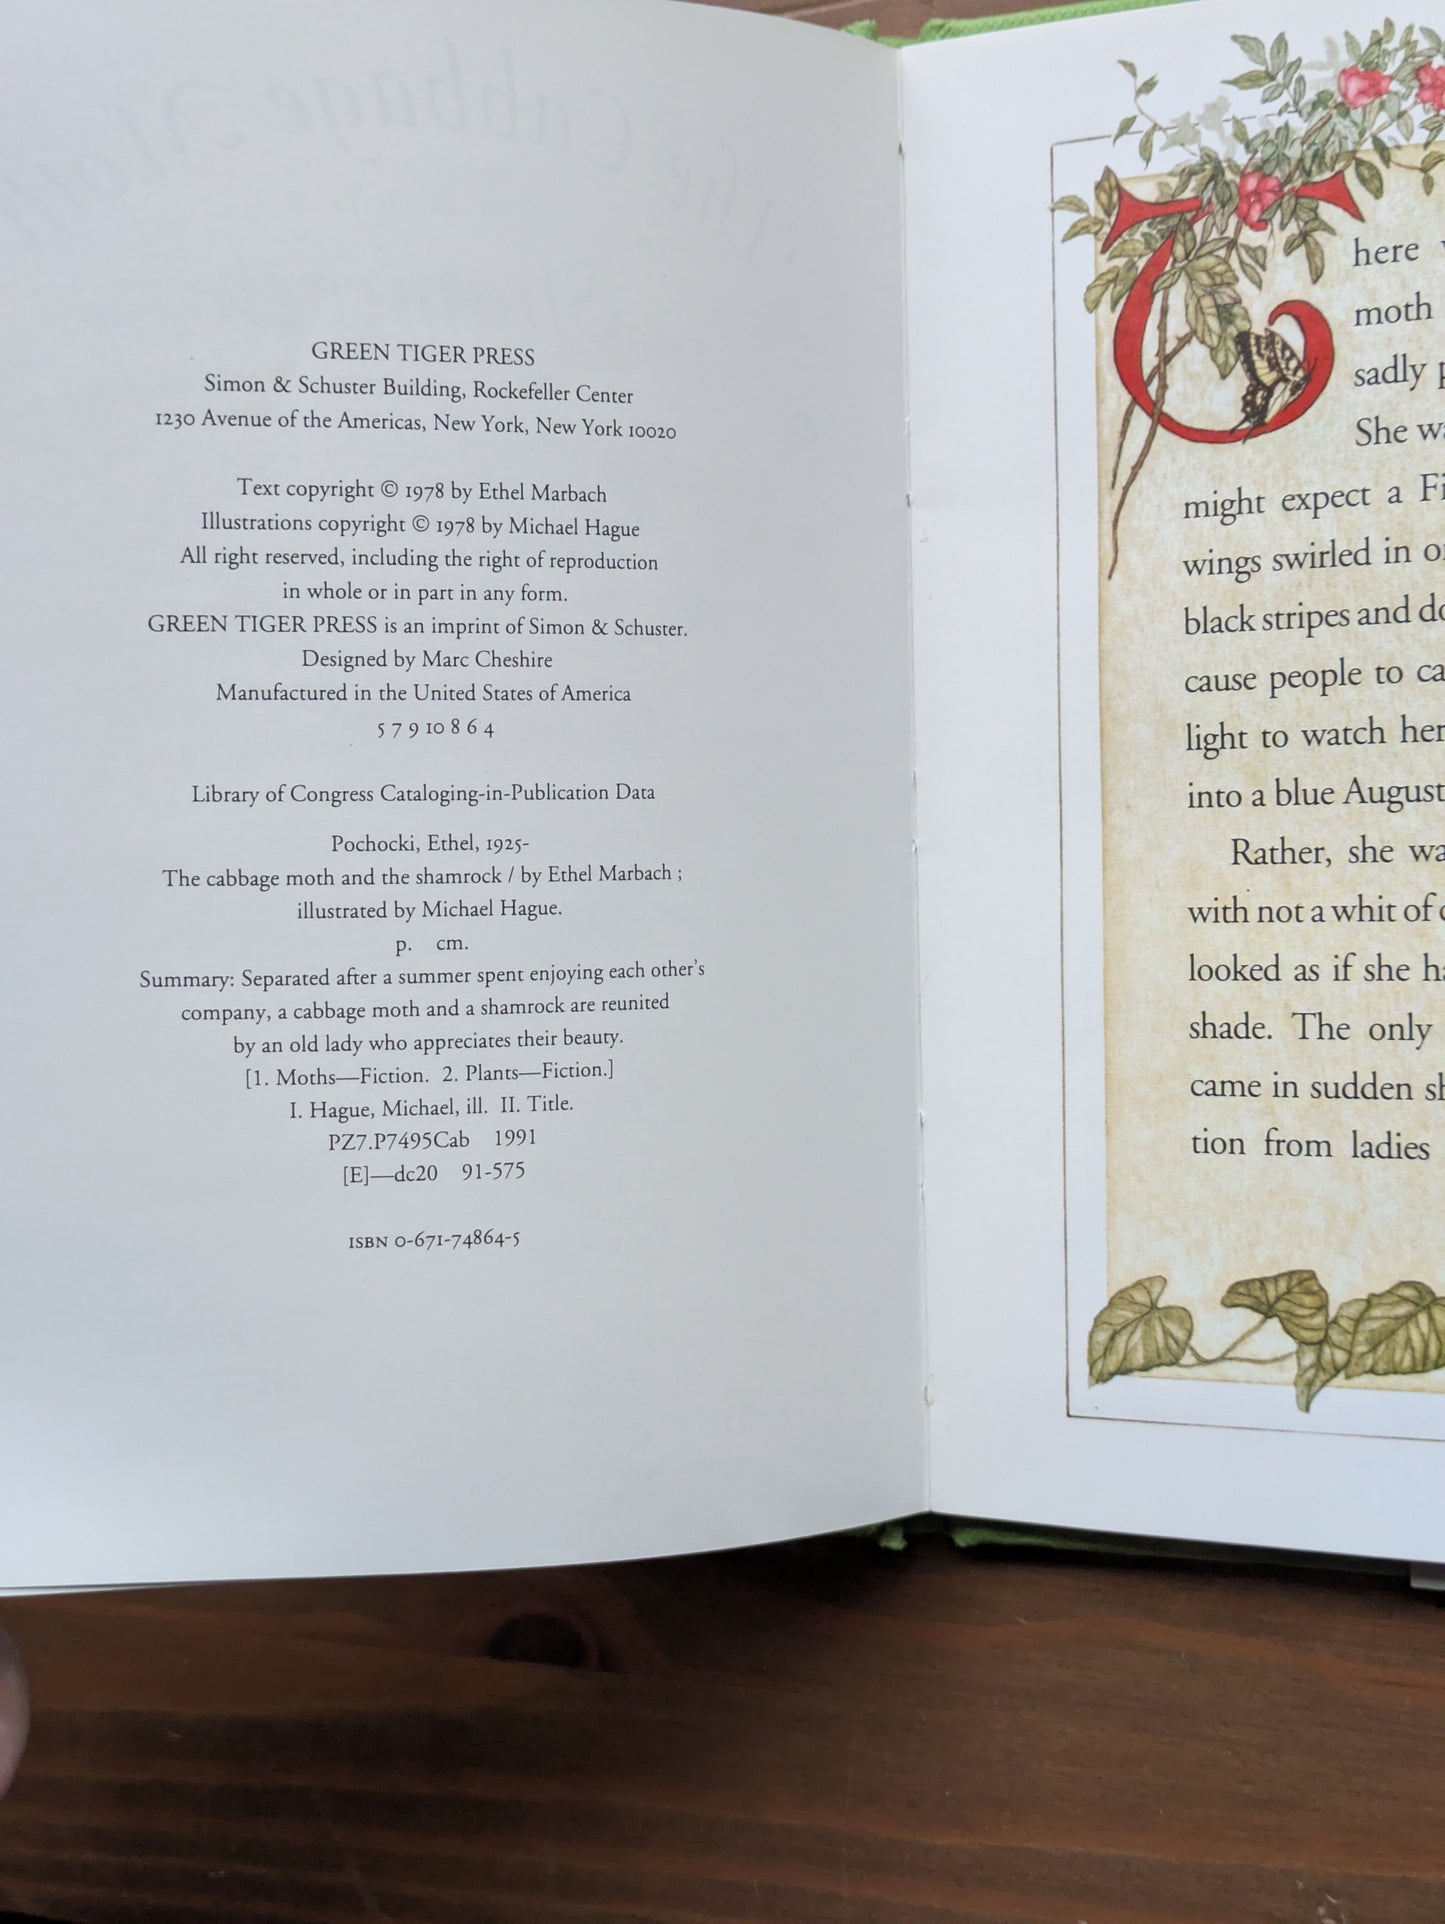 GREEN TIGER PRESS
Simon & Schuster Building, Rockefeller Center
1230 Avenue of the Americas, New York, New York 10020
Text copyright © 1978 by Ethel Marbach
Illustrations copyright © 1978 by Michael Hague
All right reserved, including the right of reproduction
in whole or in part in any form.
GREEN TIGER PRESS is an imprint of Simon & Schuster.
Designed by Marc Cheshire
Manufactured in the United States of America
5 7 9 10 8 6 4
Library of Congress Cataloging-in-Publication Data
Pochocki, Ethel, 1925-
The cabbage moth and the shamrock / by Ethel Marbach ;
illustrated by Michael Hague.
p. cm.
Summary: Separated after a summer spent enjoying each other's
company, a cabbage moth and a shamrock are reunited
by an old lady who appreciates their beauty.
[1. Moths—Fiction. 2. Plants—Fiction.]
I. Hague, Michael, ill. II. Title.
PZ7.P7495Cab 1991
[E]—dc20 91-575
ISBN 0-671-74864-5
There
moth
sadly
She
might expect a
wings swirled in
black stripes and
cause people to
light to watch
into a blue August
Rather, she
with not a whit of
looked as if she
shade. The only
came in sudden
tion from ladies